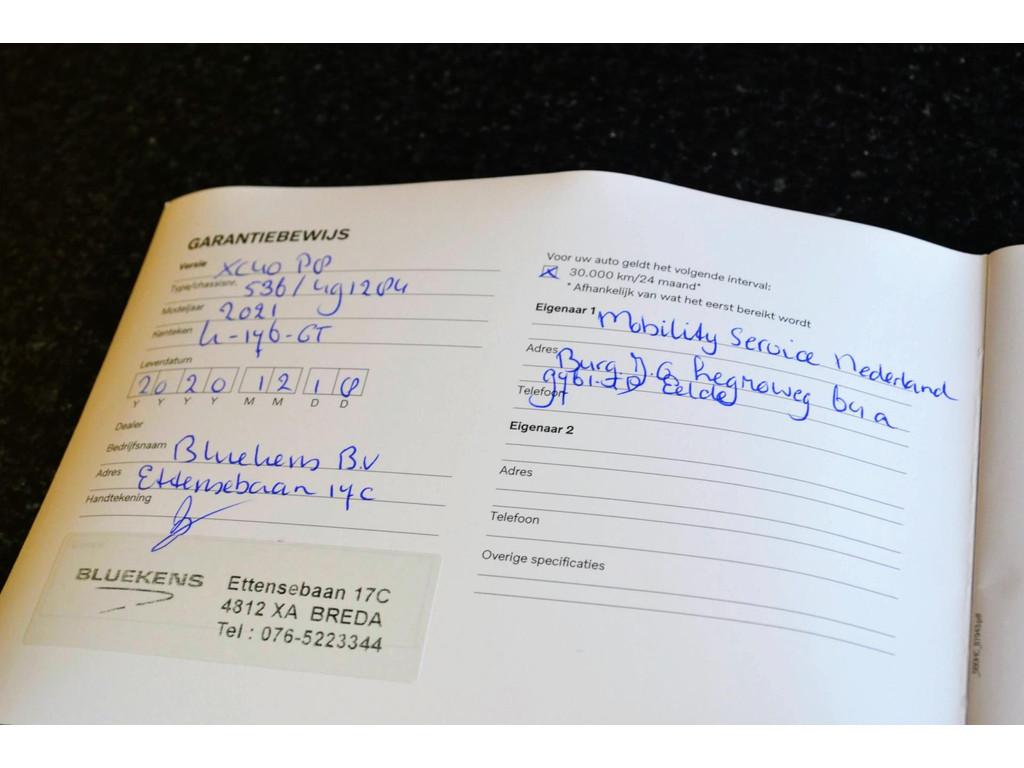 GARANTIEBEWIJS
Versie XC40 P8
Type/chassisnr. 536/4g1284
Modeljaar 2021
Kenteken h-176-GT
Leverdatum
2020 12 18
Y Y Y Y M M D D
Dealer
Bedrijfsnaam Bluekens B.V
Adres Ettensebaan 17C
Handtekening
BLUEKENS
Ettensebaan 17C
4812 XA BREDA
Tel : 076-5223344
Voor uw auto geldt het volgende interval:
30.000 km/24 maand*
* Afhankelijk van wat het eerst bereikt wordt
Eigenaar 1 Mobility Service Nederland
Adres Burg. J.G. Legroweg 64a
Telefoon Eelde
Eigenaar 2
Adres
Telefoon
Overige specificaties